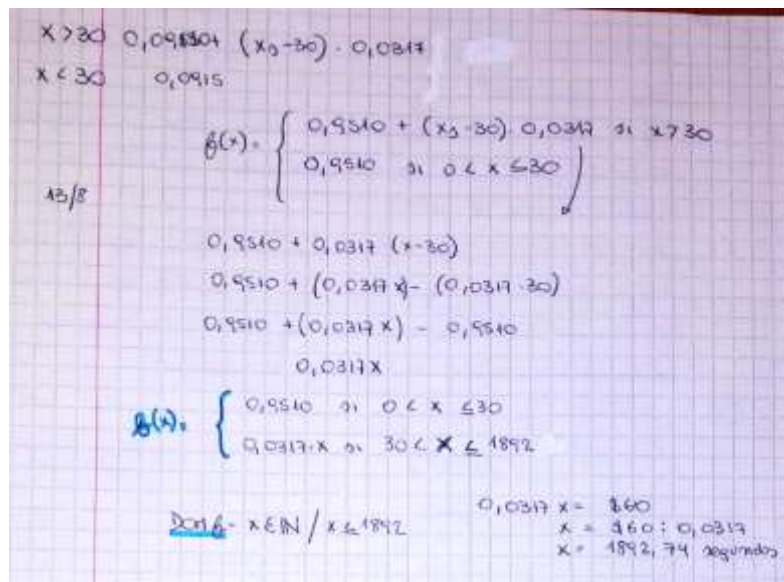 x > 30 0,09510+ (x₃-30) . 0,0317
x < 30 0,0915
f(x)= { 0,9510 + (x₃-30) 0,0317 si x > 30
0,9510 si 0 < x ≤ 30
13/8
0,9510 + 0,0317 (x-30)
0,9510 + (0,0317 x) - (0,0317 . 30)
0,9510 + (0,0317 x) - 0,9510
0,0317 x
f(x)= { 0,9510 si 0 < x ≤ 30
0,0317 . x si 30 < x ≤ 1892
Dom f = x ∈ IN / x ≤ 1892
0,0317 x = $60
x = $60 : 0,0317
x = 1892,74 segundos